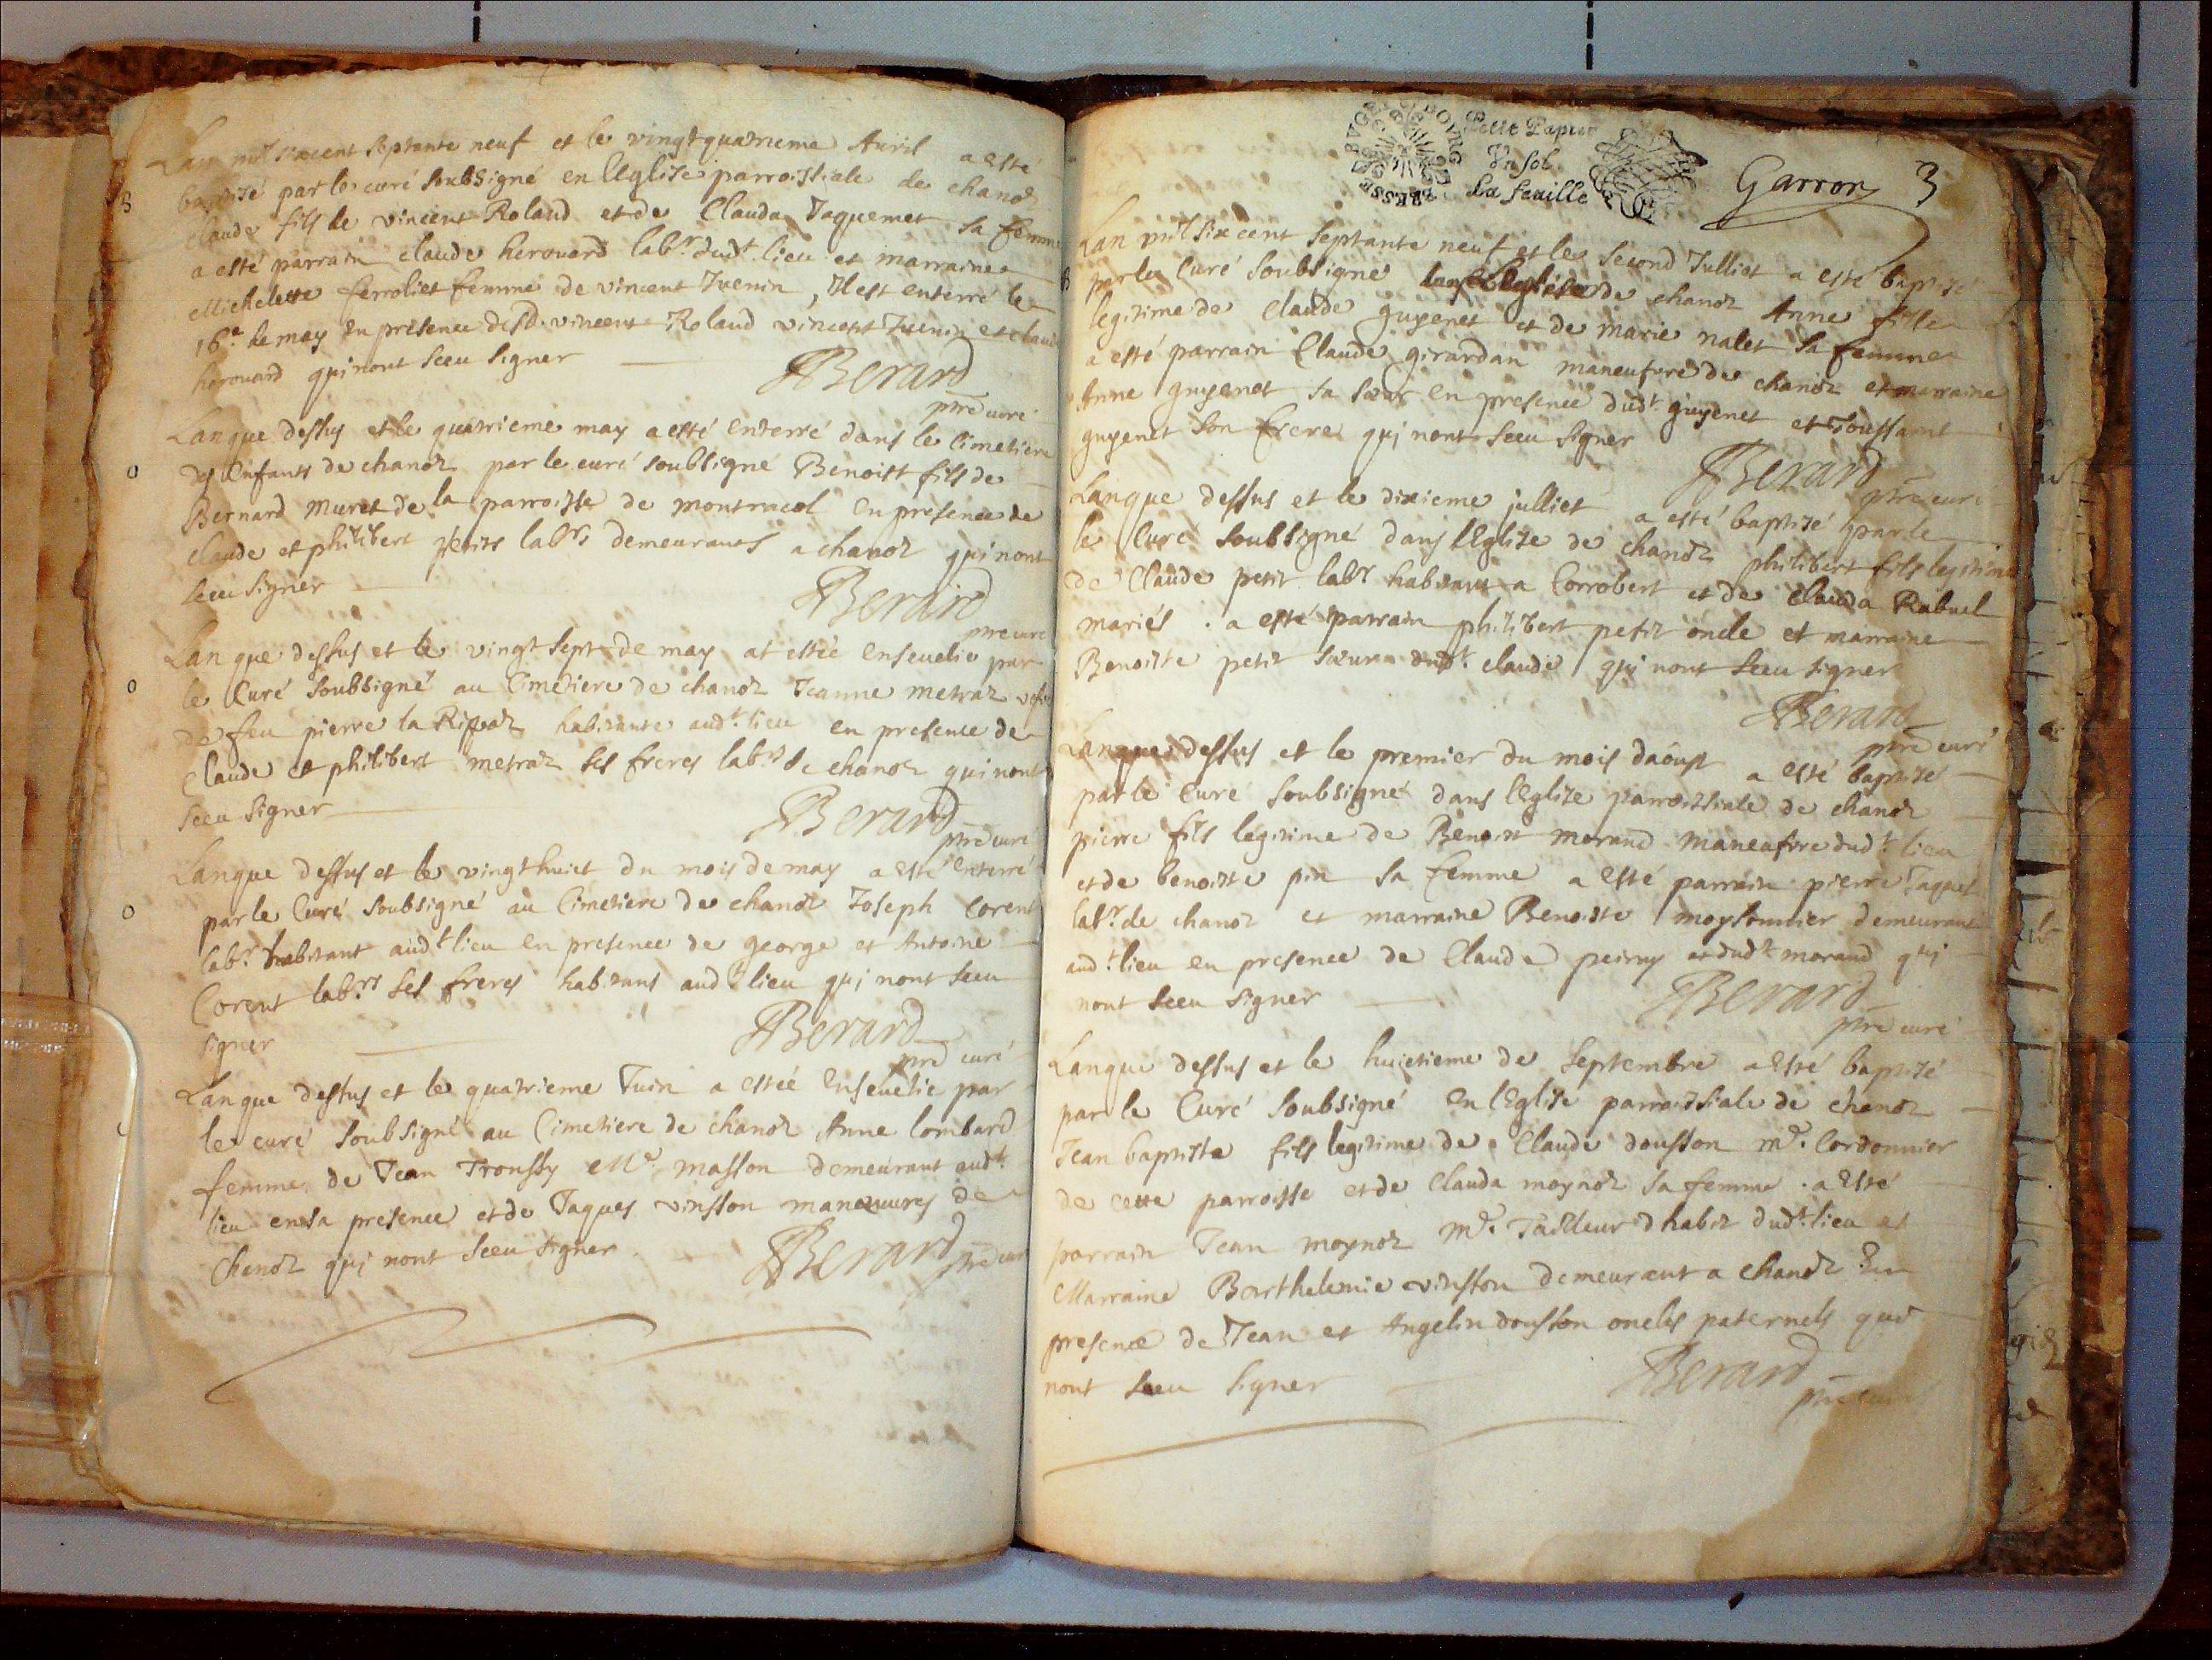 Lan mil sixcent septante neuf et le vingt quatrieme Auril a esté
baptisé par le curé soubsigné en l'Eglise parroissiale de chanoz
claude fils de vincent Roland et de Clauda Jaquemet sa femme
a esté parrain claude herouard labr. dudt. lieu et marraine
Michelette ferroliet femme de vincent Juenin, Il est enterré le
16e de may en presence desd. vincent Roland vincent Juenin et claude
herouard qui nont sceu signer
Berard
ptre curé
Lan que dessus et le quatrieme may a esté enterré dans le Cimetiere
des Enfants de chanoz par le curé soubsigné Benoist fils de
Bernard Muret de la parroisse de montracol en presence de
claude et philibert petits labrs demeurants a chanoz qui nont
sceu signer
Berard
ptre curé
Lan que dessus et le vingt sept de may at estée enseuelie par
le Curé soubsigné au Cimetiere de chanoz Jeanne metraz
de feu pierre la Ripaz habitante audt. lieu en presence de
Claude et philibert metraz ses freres labrs de chanoz qui nont
sceu signer
Berard
ptre curé
Lan que dessus et le vingt huict du mois de may a esté enterré
par le Curé soubsigné au Cimetiere de chanoz Joseph Corent
labr. habitant audt lieu en presence de george et Antoine
Corent labrs ses freres habitans audt lieu qui nont sceu
signer
Berard
ptre curé
Lan que dessus et le quatrieme Juin a estée enseuelie par
le curé soubsigné au Cimetiere de chanoz Anne lombard
femme de Jean Troussy Me. masson demeurant audt.
lieu en sa presence et de Jaques vinsson manœuures de
Chanoz qui nont sceu signer
Berard ptre curé
Petit Papier
Vn sol
La feuille
Garron 3
Lan mil six cent septante neuf et le second Julliet a esté baptisé
par le Curé soubsigné dans l'Eglise de chanoz Anne fille
legitime de Claude guyenet et de marie nalet sa femme
a esté parrain Claude girardan maneufure de chanoz et marraine
Anne guyenet sa sœur en presence dudt. guyenet et Toussaint
guyenet son frere qui nont sceu signer
Berard
ptre curé
Lan que dessus et le dixieme julliet a esté baptisé par le
le Curé soubsigné dans l'Eglise de chanoz philibert fils legitime
de Claude petit labr habitant a Corrobert et de Clauda Rabuel
mariés. a esté parrain philibert petit oncle et marraine
Benoiste petit sœur dudt. claude qui nont sceu signer
Berard
ptre curé
Lan que dessus et le premier du mois daoust a esté baptisé
par le Curé soubsigné dans l'Eglise parroissiale de chanoz
pierre fils legitime de Benoist morand maneufvre dudt. lieu
et de benoiste pin sa femme a esté parrain pierre Jaquet
labr. de chanoz et marraine Benoiste moysonnier demeurant
audt. lieu en presence de Claude et dudt. morand qui
nont sceu signer
Berard
ptre curé
Lan que dessus et le huictieme de Septembre a esté baptisé
par le Curé soubsigné en l'Eglise parroissiale de chanoz
Jean baptiste fils legitime de Claude dousson me. Cordonnier
de cette parroisse et de Clauda moynoz sa femme. a esté
parrain Jean moynoz me. Tailleur d'habit dudt. lieu et
Marraine Barthelemie vinsson demeurant a chanoz En
presence de Jean et Angelin dousson oncles paternels qui
nont sceu signer
Berard
ptre curé